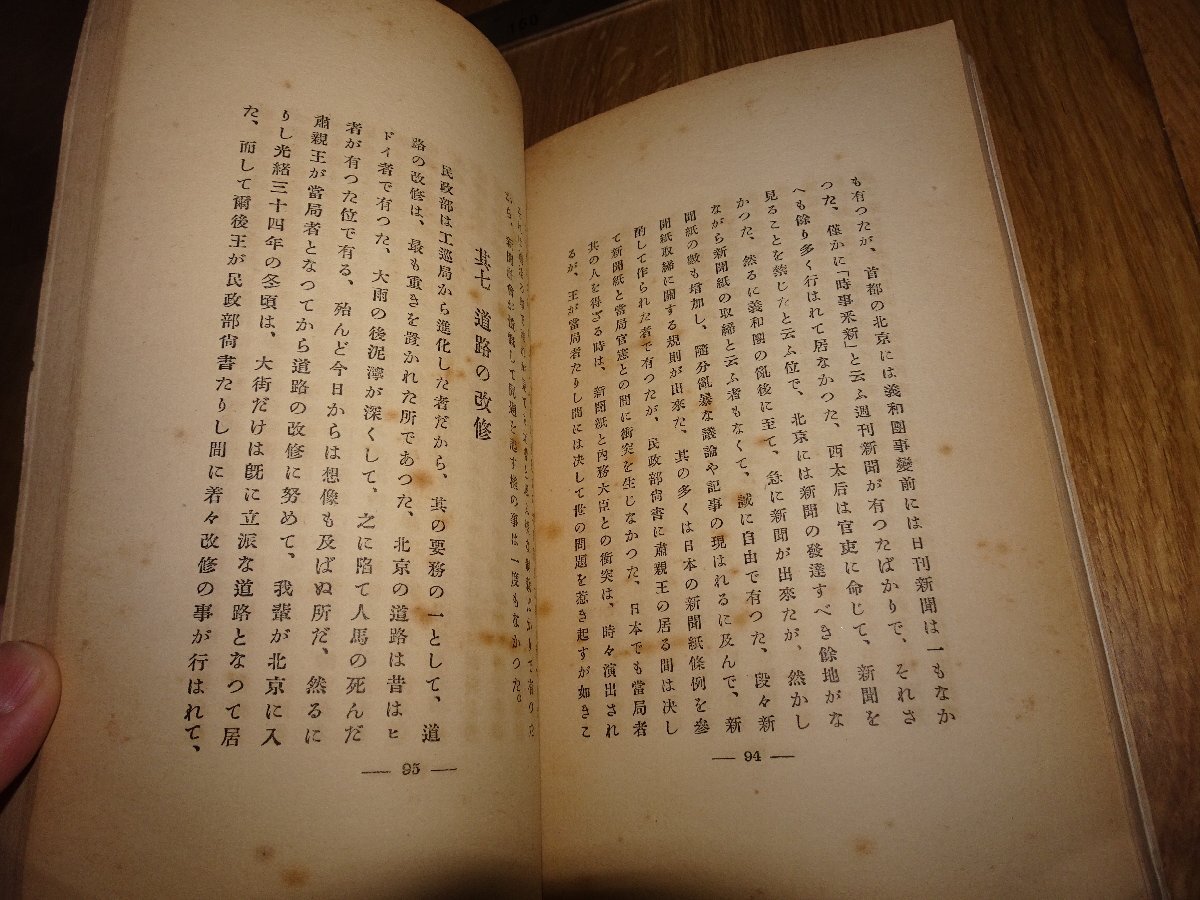 も有つたが、首都の北京には義和團事變前には日刊新聞は一もなか
つた、僅かに「時事釆新」と云ふ週刊新聞が有つたばかりで、それさ
へも餘り多く行はれて居なかつた、西太后は官吏に命じて、新聞を
見ることを禁じたと云ふ位で、北京には新聞の發達すべき餘地がな
かつた、然るに義和團の亂後に至て、急に新聞が出來たが、然かし
ながら新聞紙の取締と云ふ者もなくて、誠に自由で有つた、段々新
聞紙の數も增加し、隨分亂暴な議論や記事の現はれるに及んで、新
聞紙取締に關する規則が出來た、其の多くは日本の新聞紙條例を參
酌して作られた者で有つたが、民政部尙書に肅親王の居る間は決し
て新聞紙と當局官憲との間に衝突を生じなかつた、日本でも當局者
其の人を得ざる時は、新聞紙と内務大臣との衝突は、時々演出され
るが、王が當局者たりし間には決して世の問題を惹き起すが如きこ
— 94 —
して問題を起す樣の事は一度もなかつた。
其七 道路の改修
民政部は工巡局から進化した者だから、其の要務の一として、道
路の改修は、最も重きを置かれた所であつた、北京の道路は昔はヒ
ドイ者で有つた、大雨の後泥濘が深くして、之に陷て人馬の死んだ
者が有つた位で有る、殆んど今日からは想像も及ばぬ所だ、然るに
肅親王が當局者となつてから道路の改修に努めて、我輩が北京に入
りし光緒三十四年の冬頃は、大街だけは旣に立派な道路となつて居
た、而して爾後王が民政部尙書たりし間に着々改修の事が行はれて、
— 95 —